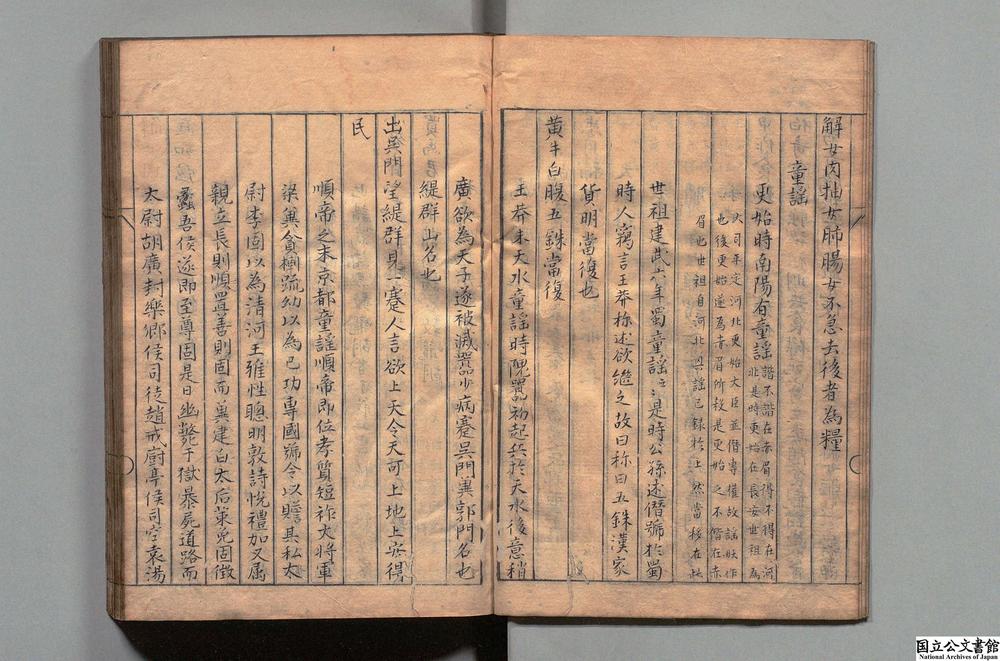 解女肉抽女肺腸女不急去後者為糧
童謡
更始時南陽有童謡諧不諧在赤眉得不得在河
北是時更始在長安世祖為
大司馬平定河北更始大臣並僭專權故謡妖作
也後更始遂為赤眉所殺是更始之不諧在赤
眉也世祖自河北興謡已録於上然當移在此
世祖建武六年蜀童謡〻是時公孫述僭號於蜀
時人竊言王莽称述欲繼之故曰称曰五銖漢家
貨明當復也
黄牛白腹五銖當復
王莽末天水童謡時隗囂初起兵於天水後意稍
廣欲為天子遂被滅囂少病蹇呉門兾郭門名也
緹群山名也
出呉門望緹群見一蹇人言欲上天令天可上地上安得
民
順帝之末京都童謡順帝即位孝質短祚大将軍
梁兾貪樹疏幼以為己功專國號令以贍其私太
尉李固以為清河王雅性聰明敦詩悦禮加又属
親立長則順置善則固而兾建白太后策免固徴
蠡吾侯遂即至尊固是日幽斃于獄暴屍道路而
太尉胡廣封樂郷侯司徒趙戒厨亭侯司空袁湯
国立公文書館
National Archives of Japan